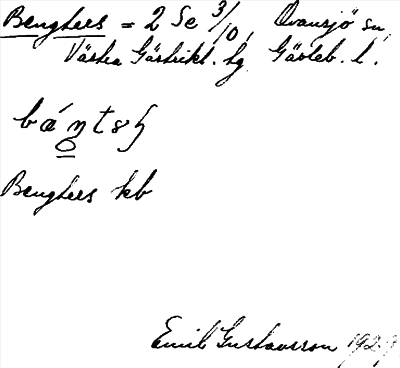 Bengters = 2 Se 3/0, Ovansjö sn,
Västra Gästrikl. hg Gävleb. l.
Bengters kb
Emil Gustavsson